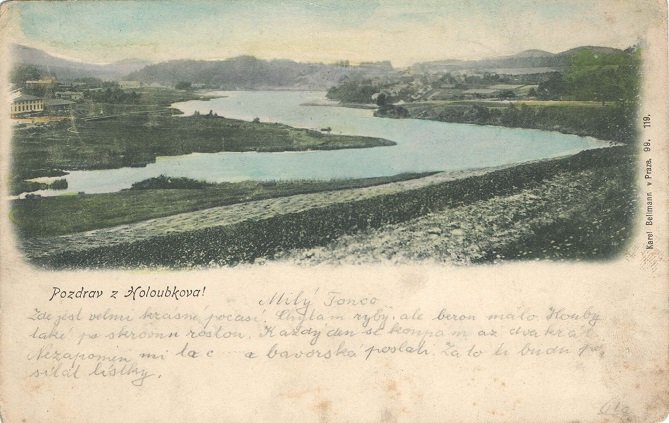 Karel Bellmann v Praze. 99. 119.
Pozdrav z Holoubkova!
Milý Tonco
Zde jest velmi krásné počasí. Chytám ryby, ale berou málo. Houby
také po skrovnu rostou. Každý den se koupám až dva krát
Nezapomen mi a bavorska poslati. Za to ti budu po
sílat lístky.